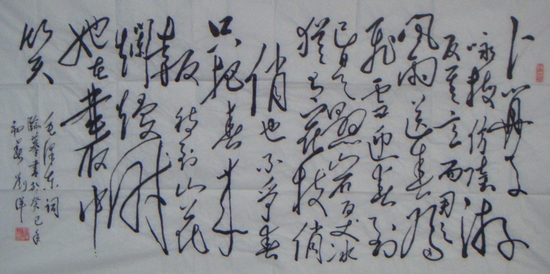 卜算子
咏梅仿陆游
反其意而用之
风雨送春归
飞雪迎春到
已是悬崖百丈冰
犹有花枝俏
俏也不争春
只把春来
报待到山花
烂漫时
她在丛中
笑
毛泽东词
临摹书于癸巳年
初夏刘